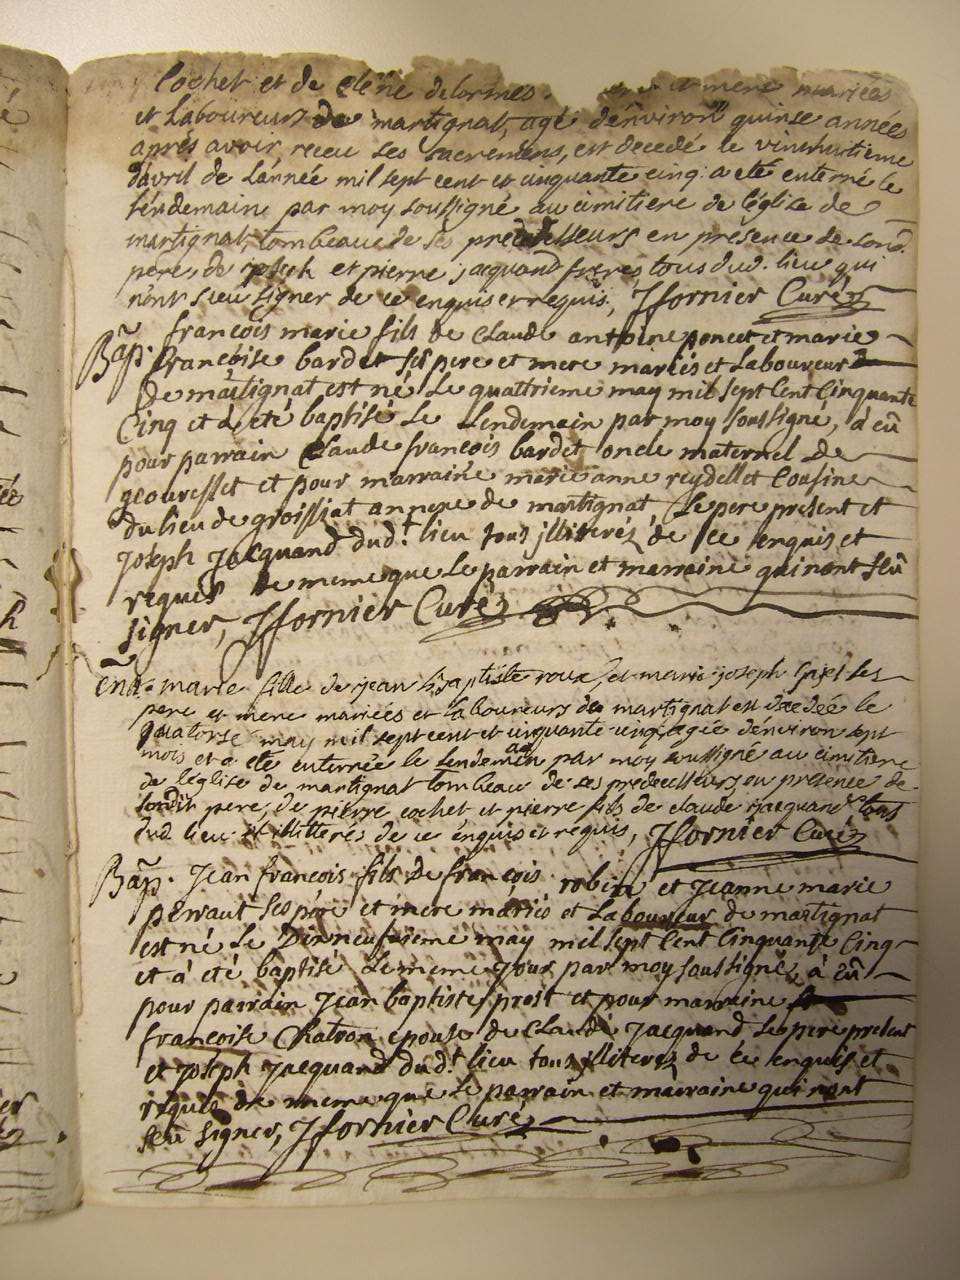 Cochet et de Clene delormes et mere mariées
et Laboureurs de martignat, agé d'environ quinse années
aprés avoir receu ses sacremens, est decedé le vinthuitieme
d'avril de l'année mil sept cent et cinquante cinq a eté enterré le
lendemain par moy soussigné au cimitiere de l'église de
martignat, tombeau de ses predecesseurs en présence de sond.
pere, de joseph et pierre jacquand freres tous dud. lieu qui
n'ont sceu signer de ce enquis et requis, Jfornier Curé
Bap. francois marie fils de Claude antoine poncet et marie
francoise bardet ses pere et mere mariés et Laboureurs
De martignat est né Le quattrieme may mil sept Cent Cinquante
Cinq et à été baptisé Le Lendemain par moy soussigné, à eû
pour parrain Claude francois bardet oncle maternel de
geouresset et pour marraine marie anne reydellet Cousine
du lieu de groissiat annexe de martignat Le pere present et
joseph jacquand dud.t lieu tous jlliterés de ce enquis et
requis de meme que Le parrain et marraine qui n'ont sceû
signer, Jfornier Curé
ent. marie fille de jean Baptiste roux, et marie joseph ses
pere et mere mariées et laboureurs de martignat est decedée le
quatorse may mil sept cent et cinquante cinq agée d'environ sept
mois et a eté enterrée le lendemain par moy soussigné au cimitiere
de l'église de martignat tombeau de ses predecesseurs, en présence de
sondit pere, de pierre cochet et pierre fils de claude jacquand tous
dud lieu et illitterés de ce enquis et requis, Jfornier Curé
Bap. Jean francois fils de francois robin et Jeanne marie
perraut ses pere et mere mariés et Laboureur de martignat
est né Le Dixneufvieme may mil sept Cent Cinquante Cinq
et à été baptisé Le meme Jour par moy soussigné, à eû
pour parrain Jean baptiste prost et pour marraine
francoise Chatron epouse de Claude Jacquand Le pere present
et joseph jacquand dud.t lieu tous jlliterés de ce enquis et
requis de meme que Le parrain et marraine qui n'ont
sceu signer, Jfornier Curé